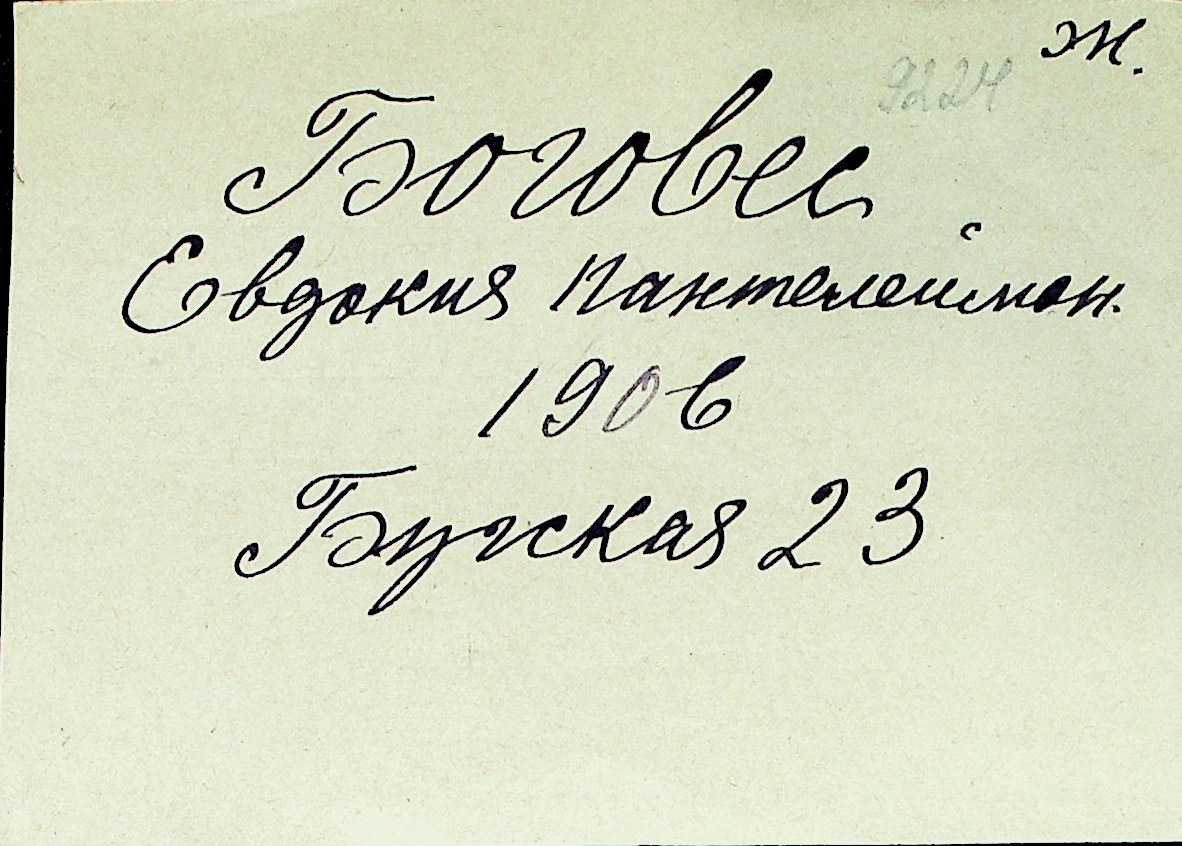 ж.
9224
Боговес
Евдокия Пантелеймон.
1906
Бугская 23